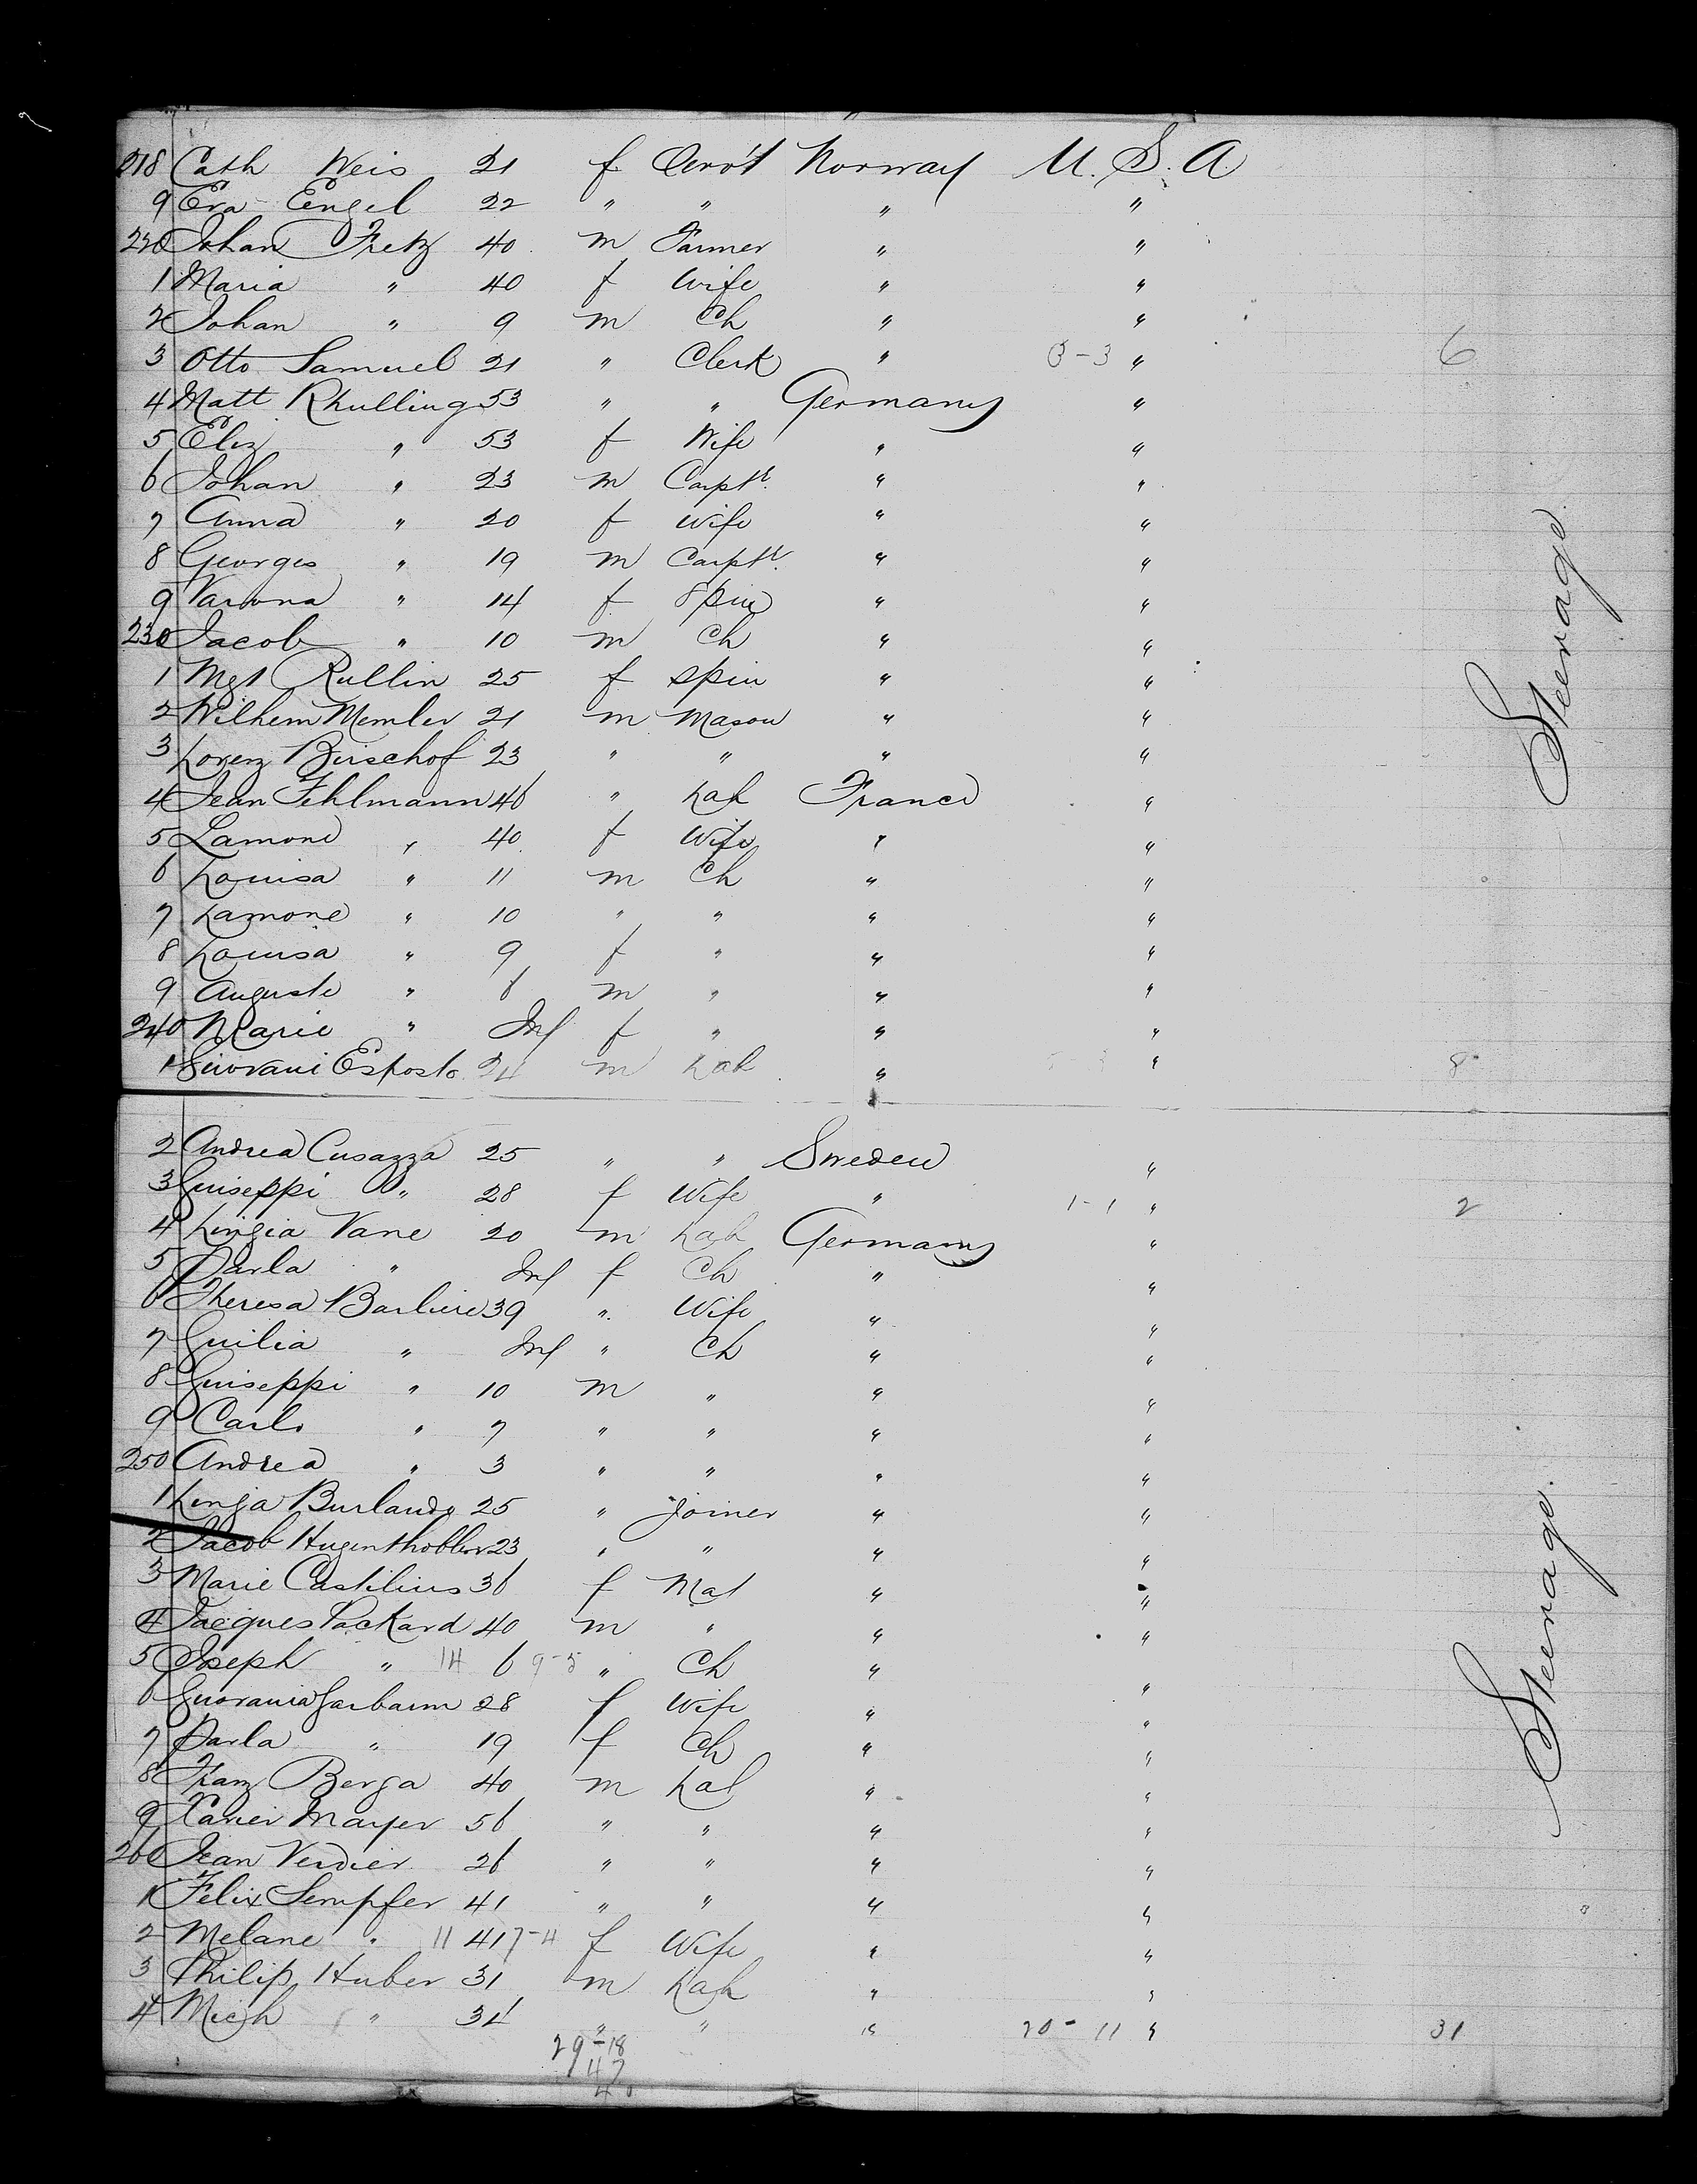 218 Cath Weis 21 f Serv't Norway U.S.A.
9 Eva Engel 22 " " " "
220 Johan Fretz 40 m Farmer " "
1 Maria " 40 f Wife " "
2 Johan " 9 m Ch " "
3 Otto Samuel 21 " Clerk " 3-3 " 6
4 Matt Rhulling 53 " " Germany "
5 Eliz " 53 f Wife " "
6 Johan " 23 m Carptr. " "
7 Anna " 20 f Wife " "
8 Georges " 19 m Carptr. " "
9 Varona " 14 f Spin " "
230 Jacob " 10 m Ch " "
1 Mgt Rullin 25 f Spin " "
2 Wilhem Memler 21 m Mason " "
3 Lorenz Birschof 23 " " " "
4 Jean Fehlmann 46 " Lab France "
5 Lamone " 40 f Wife " "
6 Louisa " 11 m Ch " "
7 Lamone " 10 " " " "
8 Louisa " 9 f " " "
9 Auguste " 6 m " " "
240 Marie " Inf f " " "
1 Giovani Esposto 24 m Lab " " 8
Steerage
2 Andrea Cusazza 25 " " Sweden "
3 Guiseppi " 28 f Wife " 1-1 " 2
4 Lingia Vane 20 m Lab Germany "
5 Parla " Inf f Ch " "
6 Theresa Barliere 39 " Wife " "
7 Guilia " Inf " Ch " "
8 Guiseppi " 10 m " " "
9 Carlo " 7 " " " "
250 Andrea " 3 " " " "
1 Linja Burlando 25 " Joiner " "
2 Jacob Hugenthobler 23 " " " "
3 Marie Castilius 36 f Mat " "
4 Jacques Packard 40 m " " "
5 Joseph " 14 6 9-5 " Ch " "
6 Giovania Garbarm 28 f Wife " "
7 Parla " 19 f Ch " "
8 Franz Berga 40 m Lab " "
9 Xavier Mayer 56 " " " "
260 Jean Verdier 26 " " " "
1 Felix Sempfer 41 " " " "
2 Melane " 11 41 7-4 f Wife " "
3 Philip Huber 31 m Lab " "
4 Mich " 34 " " " 20-11 " 31
29-18
47
Steerage.